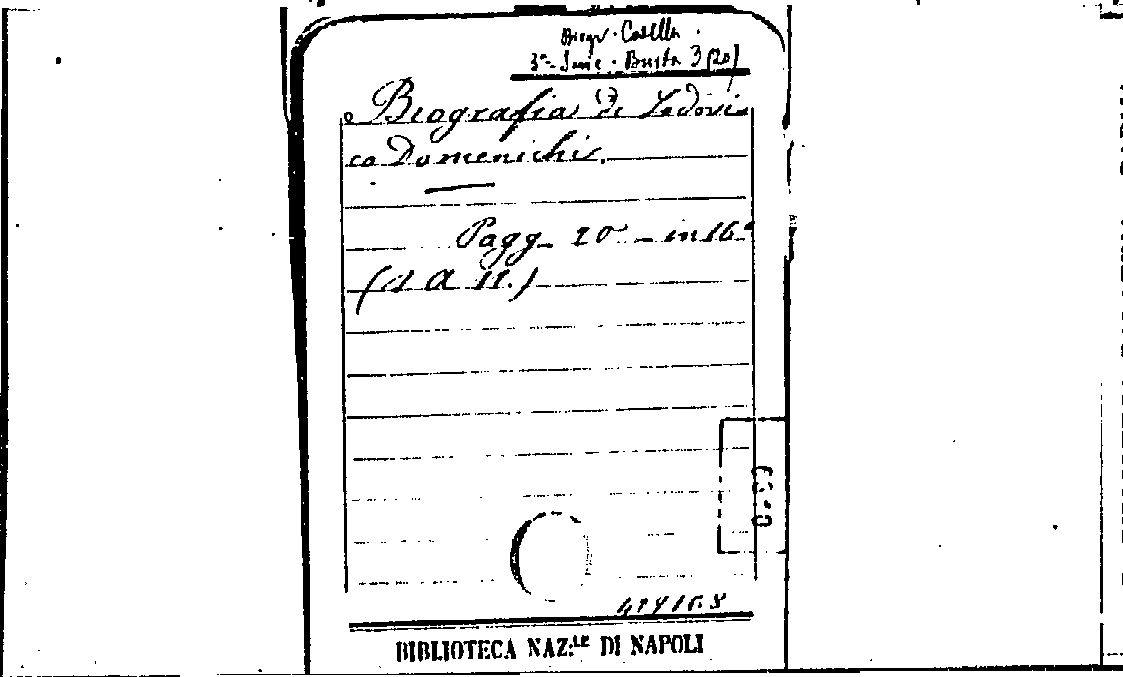 Biogr. Casella
3ª Serie. Busta 3 (20)
Biografia di Lodovi
co Domenichi.
Pagg. 20 in 16º
(1 a 11.)
BIBLIOTECA NAZ:LE DI NAPOLI